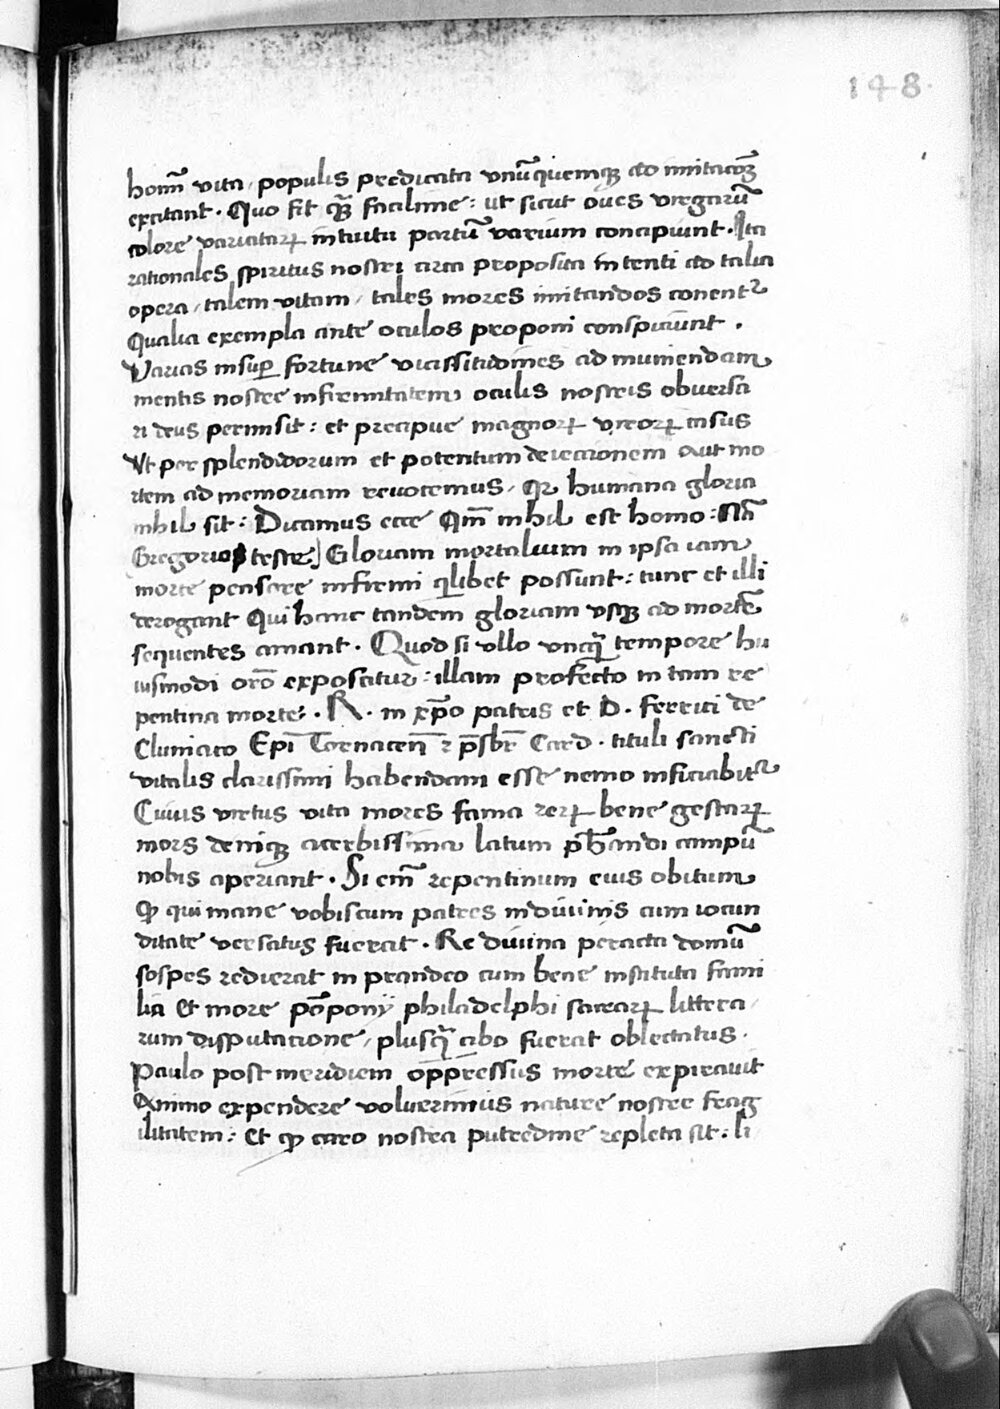 148.
hoım̄ vita, populis predicata vnūquemqꝫ ad imitacōꝫ
excitant. Quo fit qꝫ facilime: ut sicut oues virgarū
colore variatarꝝ intuitu partū varium concipiunt. Ita
rationales spiritus nostri circa proposita intenti ad talia
opera, talem vitam, tales mores imitandos conentr̉
Qualia exempla ante oculos proponi conspiciūnt.
Varias insuꝑ fortune vicissitudines ad muniendam
mentis nostre infirmitatem oculis nostris obuersa
ri deus permisit: et precipue magnorꝝ virorꝝ casus
Vt per splendidorum et potentum deiectionem aut mo
rtem ad memoriam reuocemus, qꝛ humana gloria
nihil sit: Dicamus ecce Qm̄ nihil est homo: Nā
Gregorio teste) Gloriam mortalium in ipsa iam
morte pensare infirmi qlibet possunt: tunc et illi
derogant Qui hanc tandem gloriam vsqꝫ ad mortē
sequentes amant. Quod si vllo vnqꝫ tempore hu
iusmodi orō exposcatur: illam profecto in tam re
pentina morte. R. in xp̄o patris et D. ferrici de
Cluniaco Ep̄i Tornaceñ ꝛ p̄sbr̄ Card. tituli sancti
vitalis clarissimi habendam esse nemo inficiabitr̉
Cuius virtus vita mores fama rerꝝ bene gestarꝝ
mors deniqꝫ acerbissima latum p̄hāndi campū
nobis aperiant. Si em̄ repentinum eius obitum
Qꝫ qui mane vobiscum patres in diuinis cum iocun
ditate versatus fuerat. Re diuina peracta domū
sospes redierat in prandeo cum bene instituta fami
lia Et more pōponij philadelphi sacrarꝝ littera
rum disputatione, plusqꝫ cibo fuerat oblectatus.
Paulo post meridiem oppressus morte expirauit
Animo expendere voluerimus nature nostre frag
ilitatem: Et qꝫ caro nostra putredine repleta sit: li